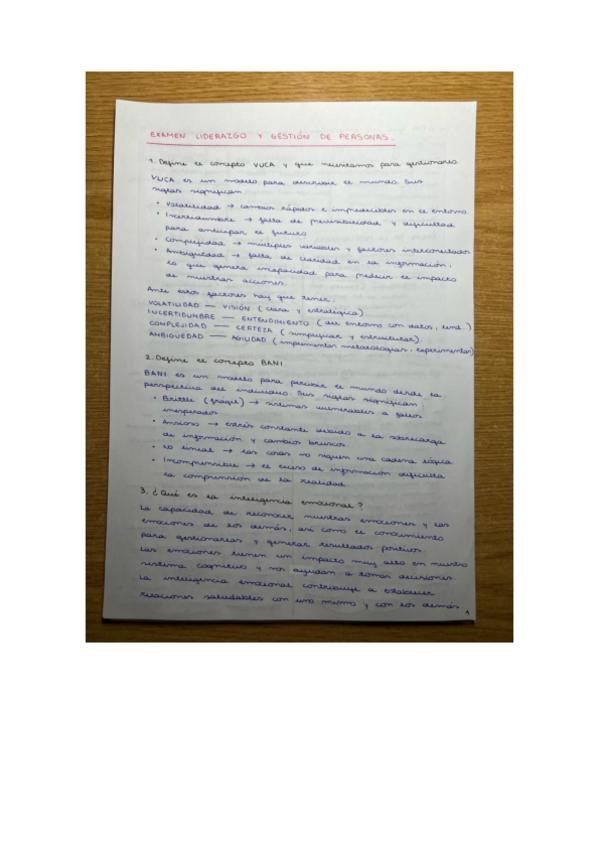 EXAMEN LIDERAZGO Y GESTIÓN DE PERSONAS.
1. Define el concepto VUCA y que necesitamos para gestionarlo
VUCA es un modelo para describir el mundo. Sus
siglas significan:
• Volatilidad → cambios rápidos e impredecibles en el entorno
• Incertidumbre → falta de previsibilidad y dificultad
para anticipar el futuro
• Complejidad → múltiples variables y factores interconectados
• Ambigüedad → falta de claridad en la información,
lo que genera incapacidad para predecir el impacto
de nuestras acciones.
Ante estos factores hay que tener:
VOLATILIDAD — VISIÓN (clara y estratégica)
INCERTIDUMBRE — ENTENDIMIENTO (del entorno con datos, tend.)
COMPLEJIDAD — CERTEZA (simplificar y estructurar)
AMBIGUEDAD — AGILIDAD (implementar metodologías, experimentar)
2. Define el concepto BANI
BANI es un modelo para percibir el mundo desde la
perspectiva del individuo. Sus siglas significan:
• Brittle (fragil) → sistemas vulnerables a fallos
inesperados
• Ansioso → estrés constante debido a la sobrecarga
de información y cambios bruscos.
• No lineal → las cosas no siguen una cadena lógica
• Incomprensible → el exceso de información dificulta
la comprensión de la realidad
3. ¿Qué es la inteligencia emocional?
La capacidad de reconocer nuestras emociones y las
emociones de los demás, así como el conocimiento
para gestionarlas y generar resultados positivos.
Las emociones tienen un impacto muy alto en nuestro
sistema cognitivo y nos ayudan a tomar decisiones.
La inteligencia emocional contribuye a establecer
relaciones saludables con uno mismo y con los demás.
1